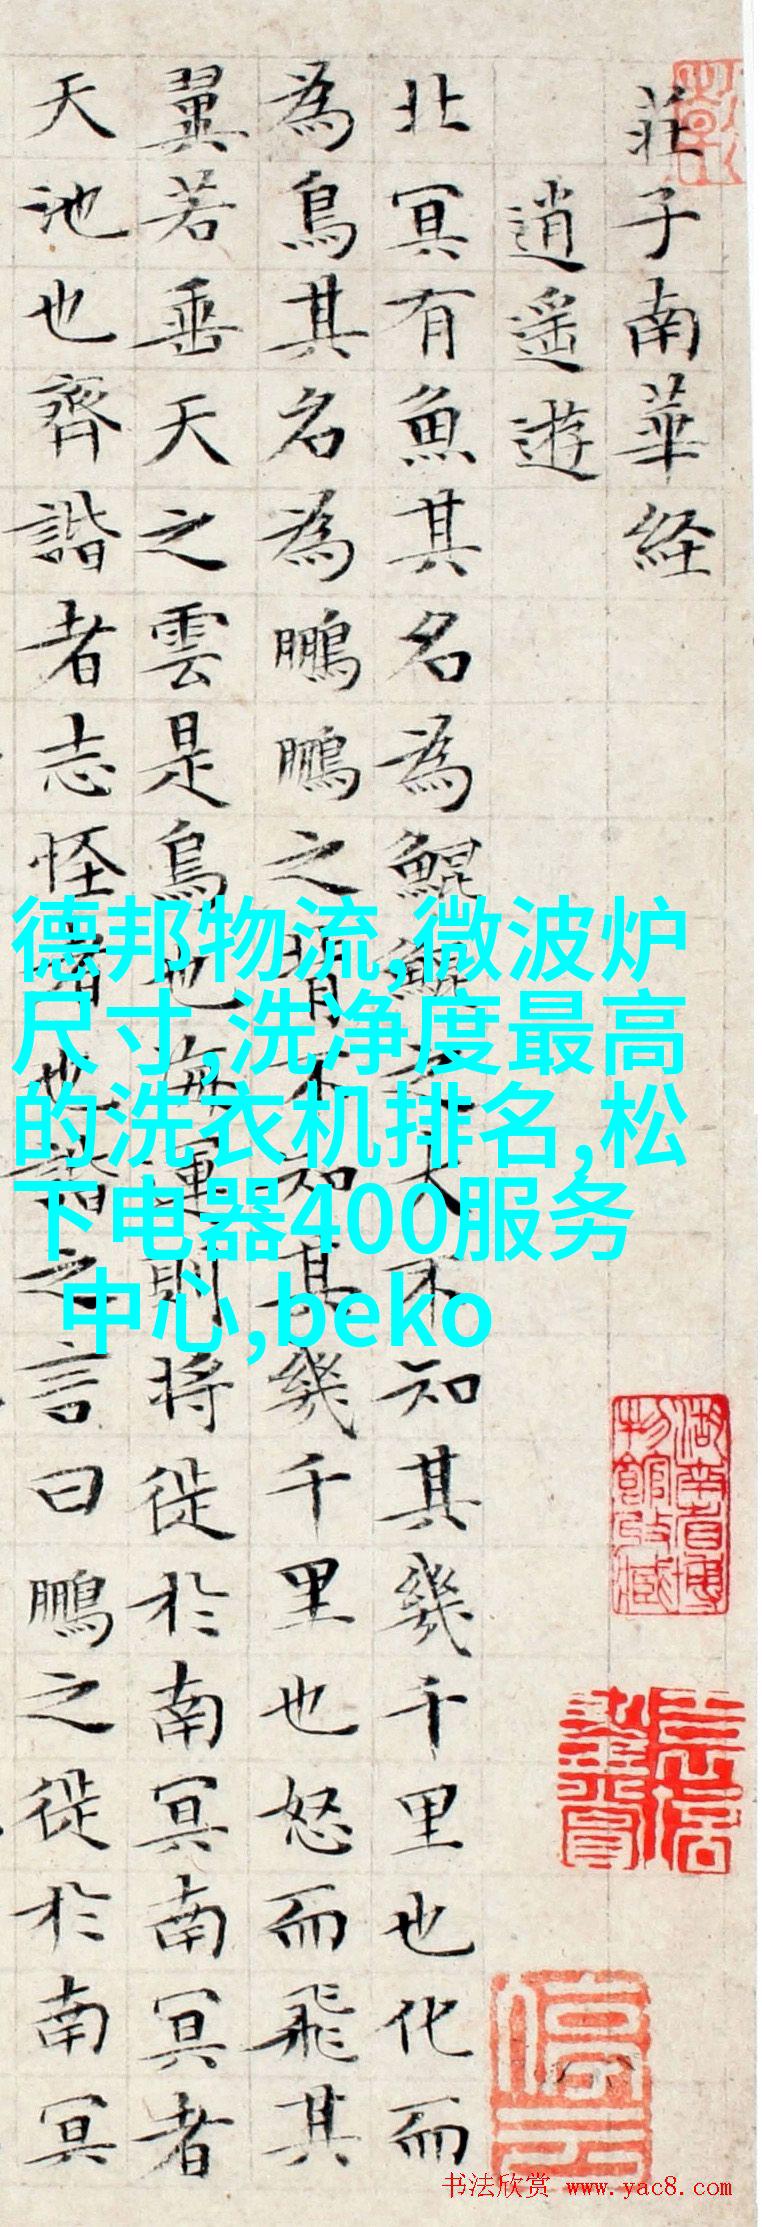 莊子南華経
逍遥遊
北冥有魚其名為鯤鯤之大不知其幾千里也化而
為鳥其名為鵬鵬之背不知其幾千里也怒而飛其
翼若垂天之雲是鳥也海運則将徙於南冥南冥者
天池也齊諧者志怪者也諧之言曰鵬之徙於南冥
德邦物流,微波炉
尺寸,洗净度最高
的洗衣机排名,松
下电器400服务
中心,beko
湖南省博
物館收藏
书法欣赏 www.yac8.com